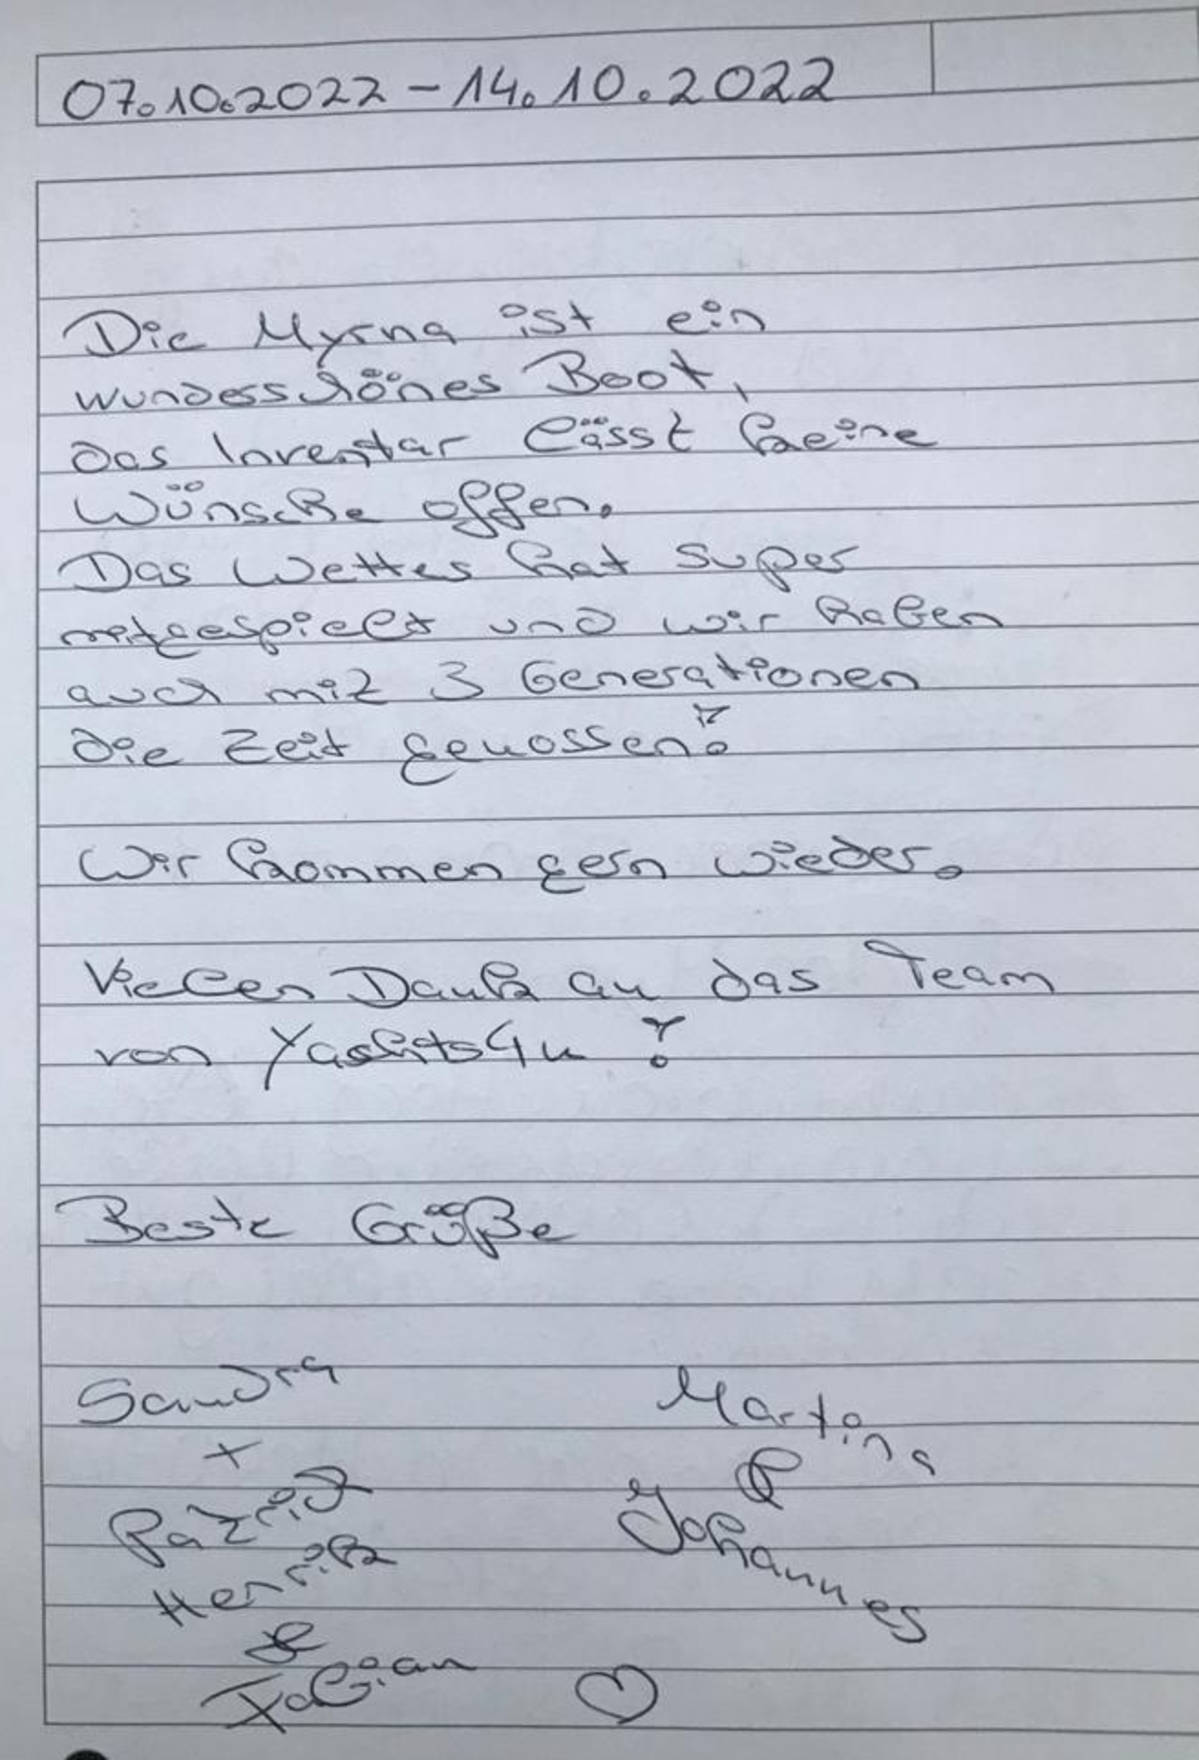 07.10.2022 - 14.10.2022
Die Myrna ist ein
wunderschönes Boot,
das Inventar lässt keine
Wünsche offen.
Das Wetter hat super
mitgespielt und wir haben
auch mit 3 Generationen
die Zeit genossen!
Wir kommen gern wieder.
Vielen Dank an das Team
von Yachts4u!
Beste Grüße
Sandra
+
Patrick
Henrik
&
Fabian
Martina
&
Johannes